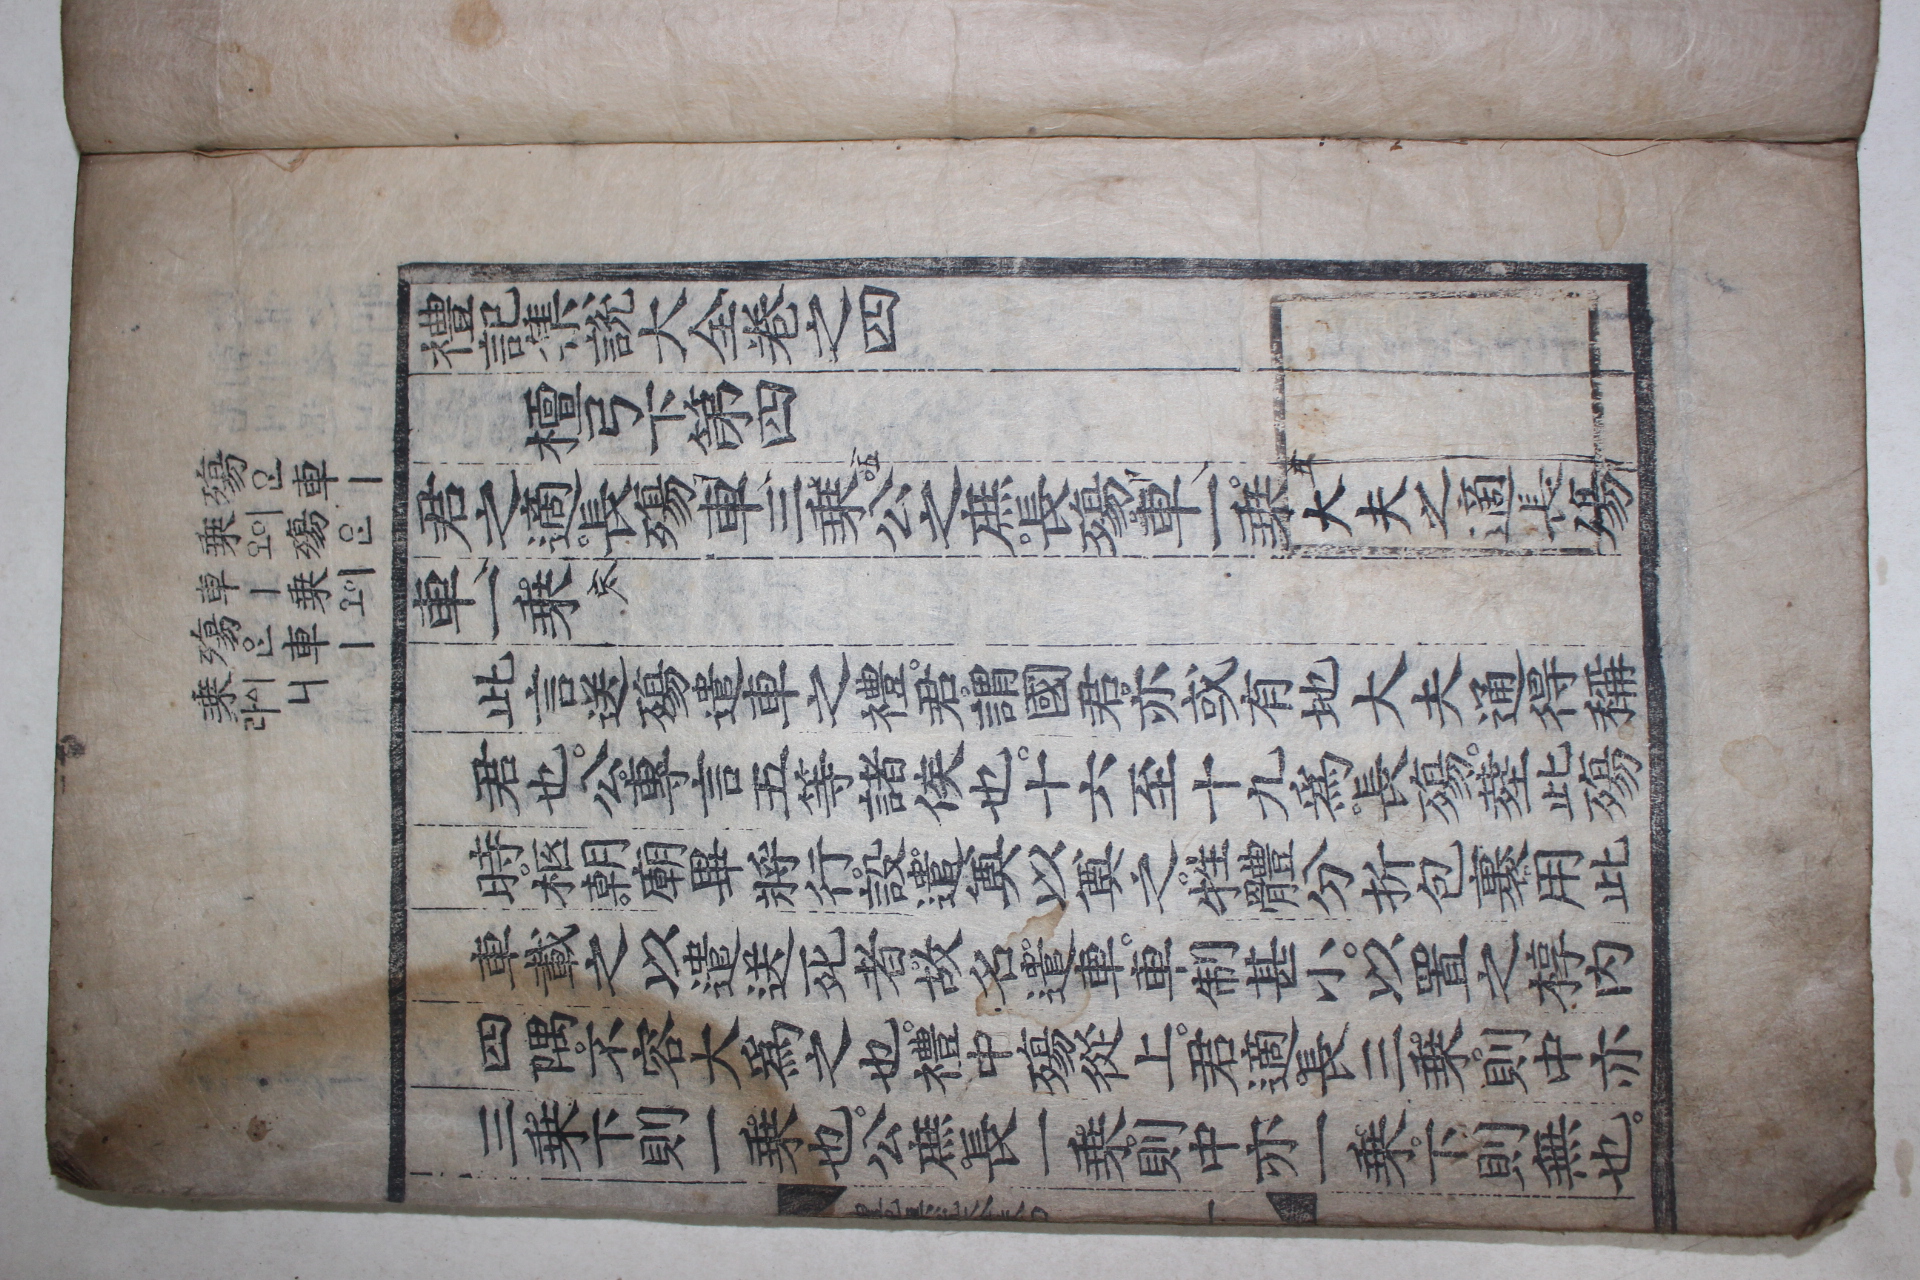 殤은車ㅣ
乘오이殤은
車ㅣ乘오이
殤은車ㅣ
乘이니
라
禮記集說大全卷之四
檀弓下第四
君之適長殤車三乘公之庶長殤車一乘大夫之適長殤
車一乘
此言送殤遣車之禮君謂國君亦或有地大夫通得稱
君也公專言五等諸侯也十六至十九爲長殤葬此殤
時柩朝廟畢將行設遣奠以奠之牲體分折包裹用此
車載之以遣送死者故名遣車車制甚小以置之椁內
四隅不容大爲之也禮中殤從上君適長三乘則中亦
三乘下則一乘也公庶長一乘則中亦一乘下則無也